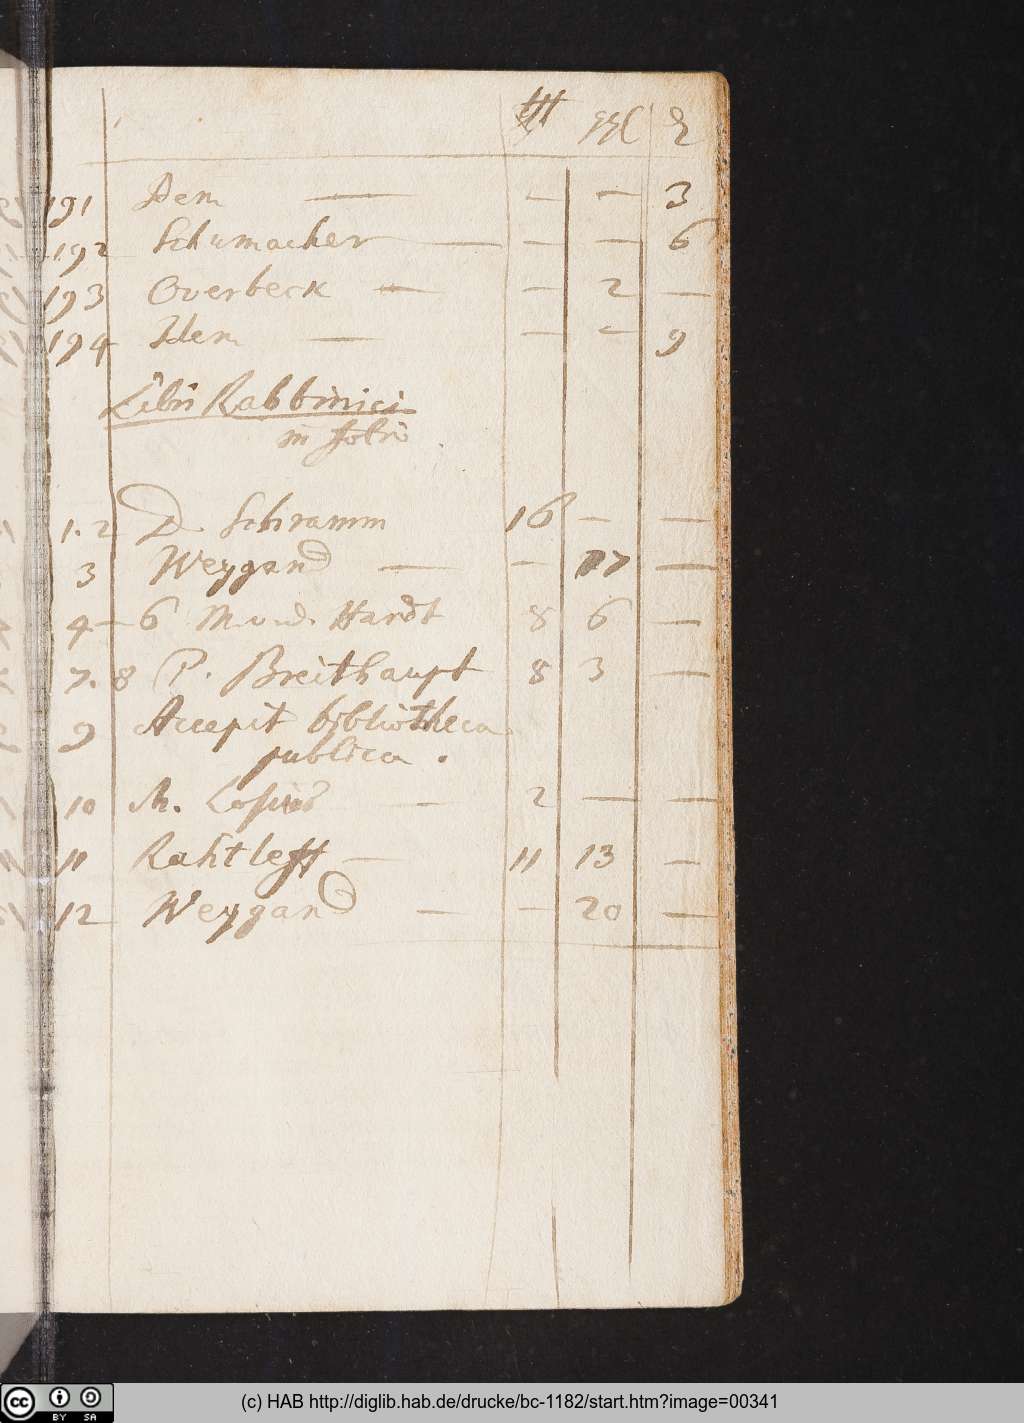 ggl ₰
191 Dem — — — 3
192 Schumacher — — — 6
193 Overbeck — — 2 —
194 Idem — — — 9
Libri Rabbinici
in folio
1. 2 D. Schramm 16 — —
3 Weygand — — 17 —
4 — 6 M. v. d. Hardt 8 6 —
7. 8 P. Breithaupt 8 3 —
9 Accepit bibliotheca
publica.
10 M. — 2 — —
11 Rahtleff — 11 13 —
12 Weygand — — 20 —
(c) HAB http://diglib.hab.de/drucke/bc-1182/start.htm?image=00341
cc BY SA